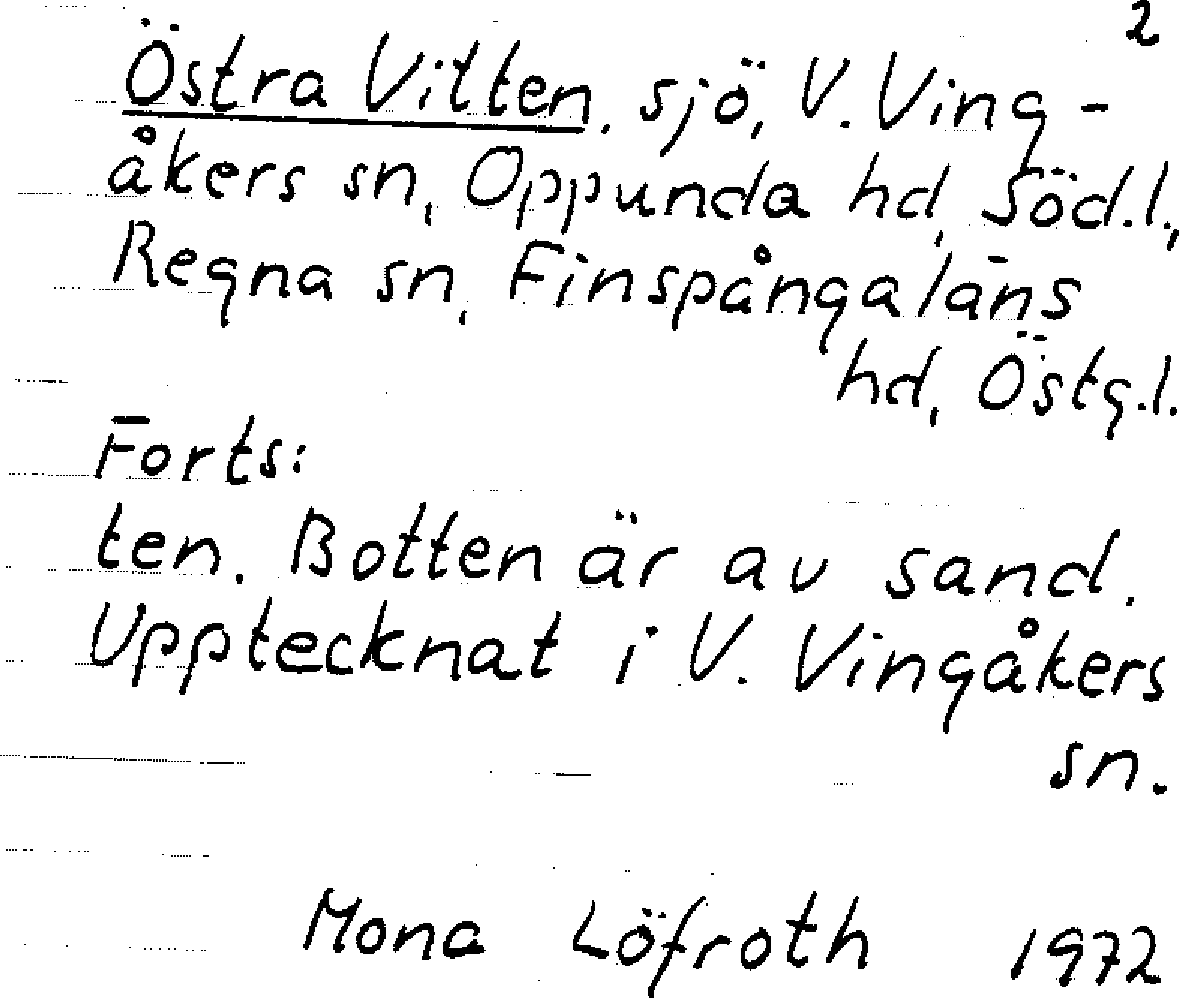 2
Östra Vitten, sjö, V. Ving-
åkers sn, Oppunda hd, Söd.l.,
Regna sn, Finspångaläns
hd, Östg.l.
Forts:
ten. Botten är av sand.
Upptecknat i V. Vingåkers
sn.
Mona Löfroth 1972